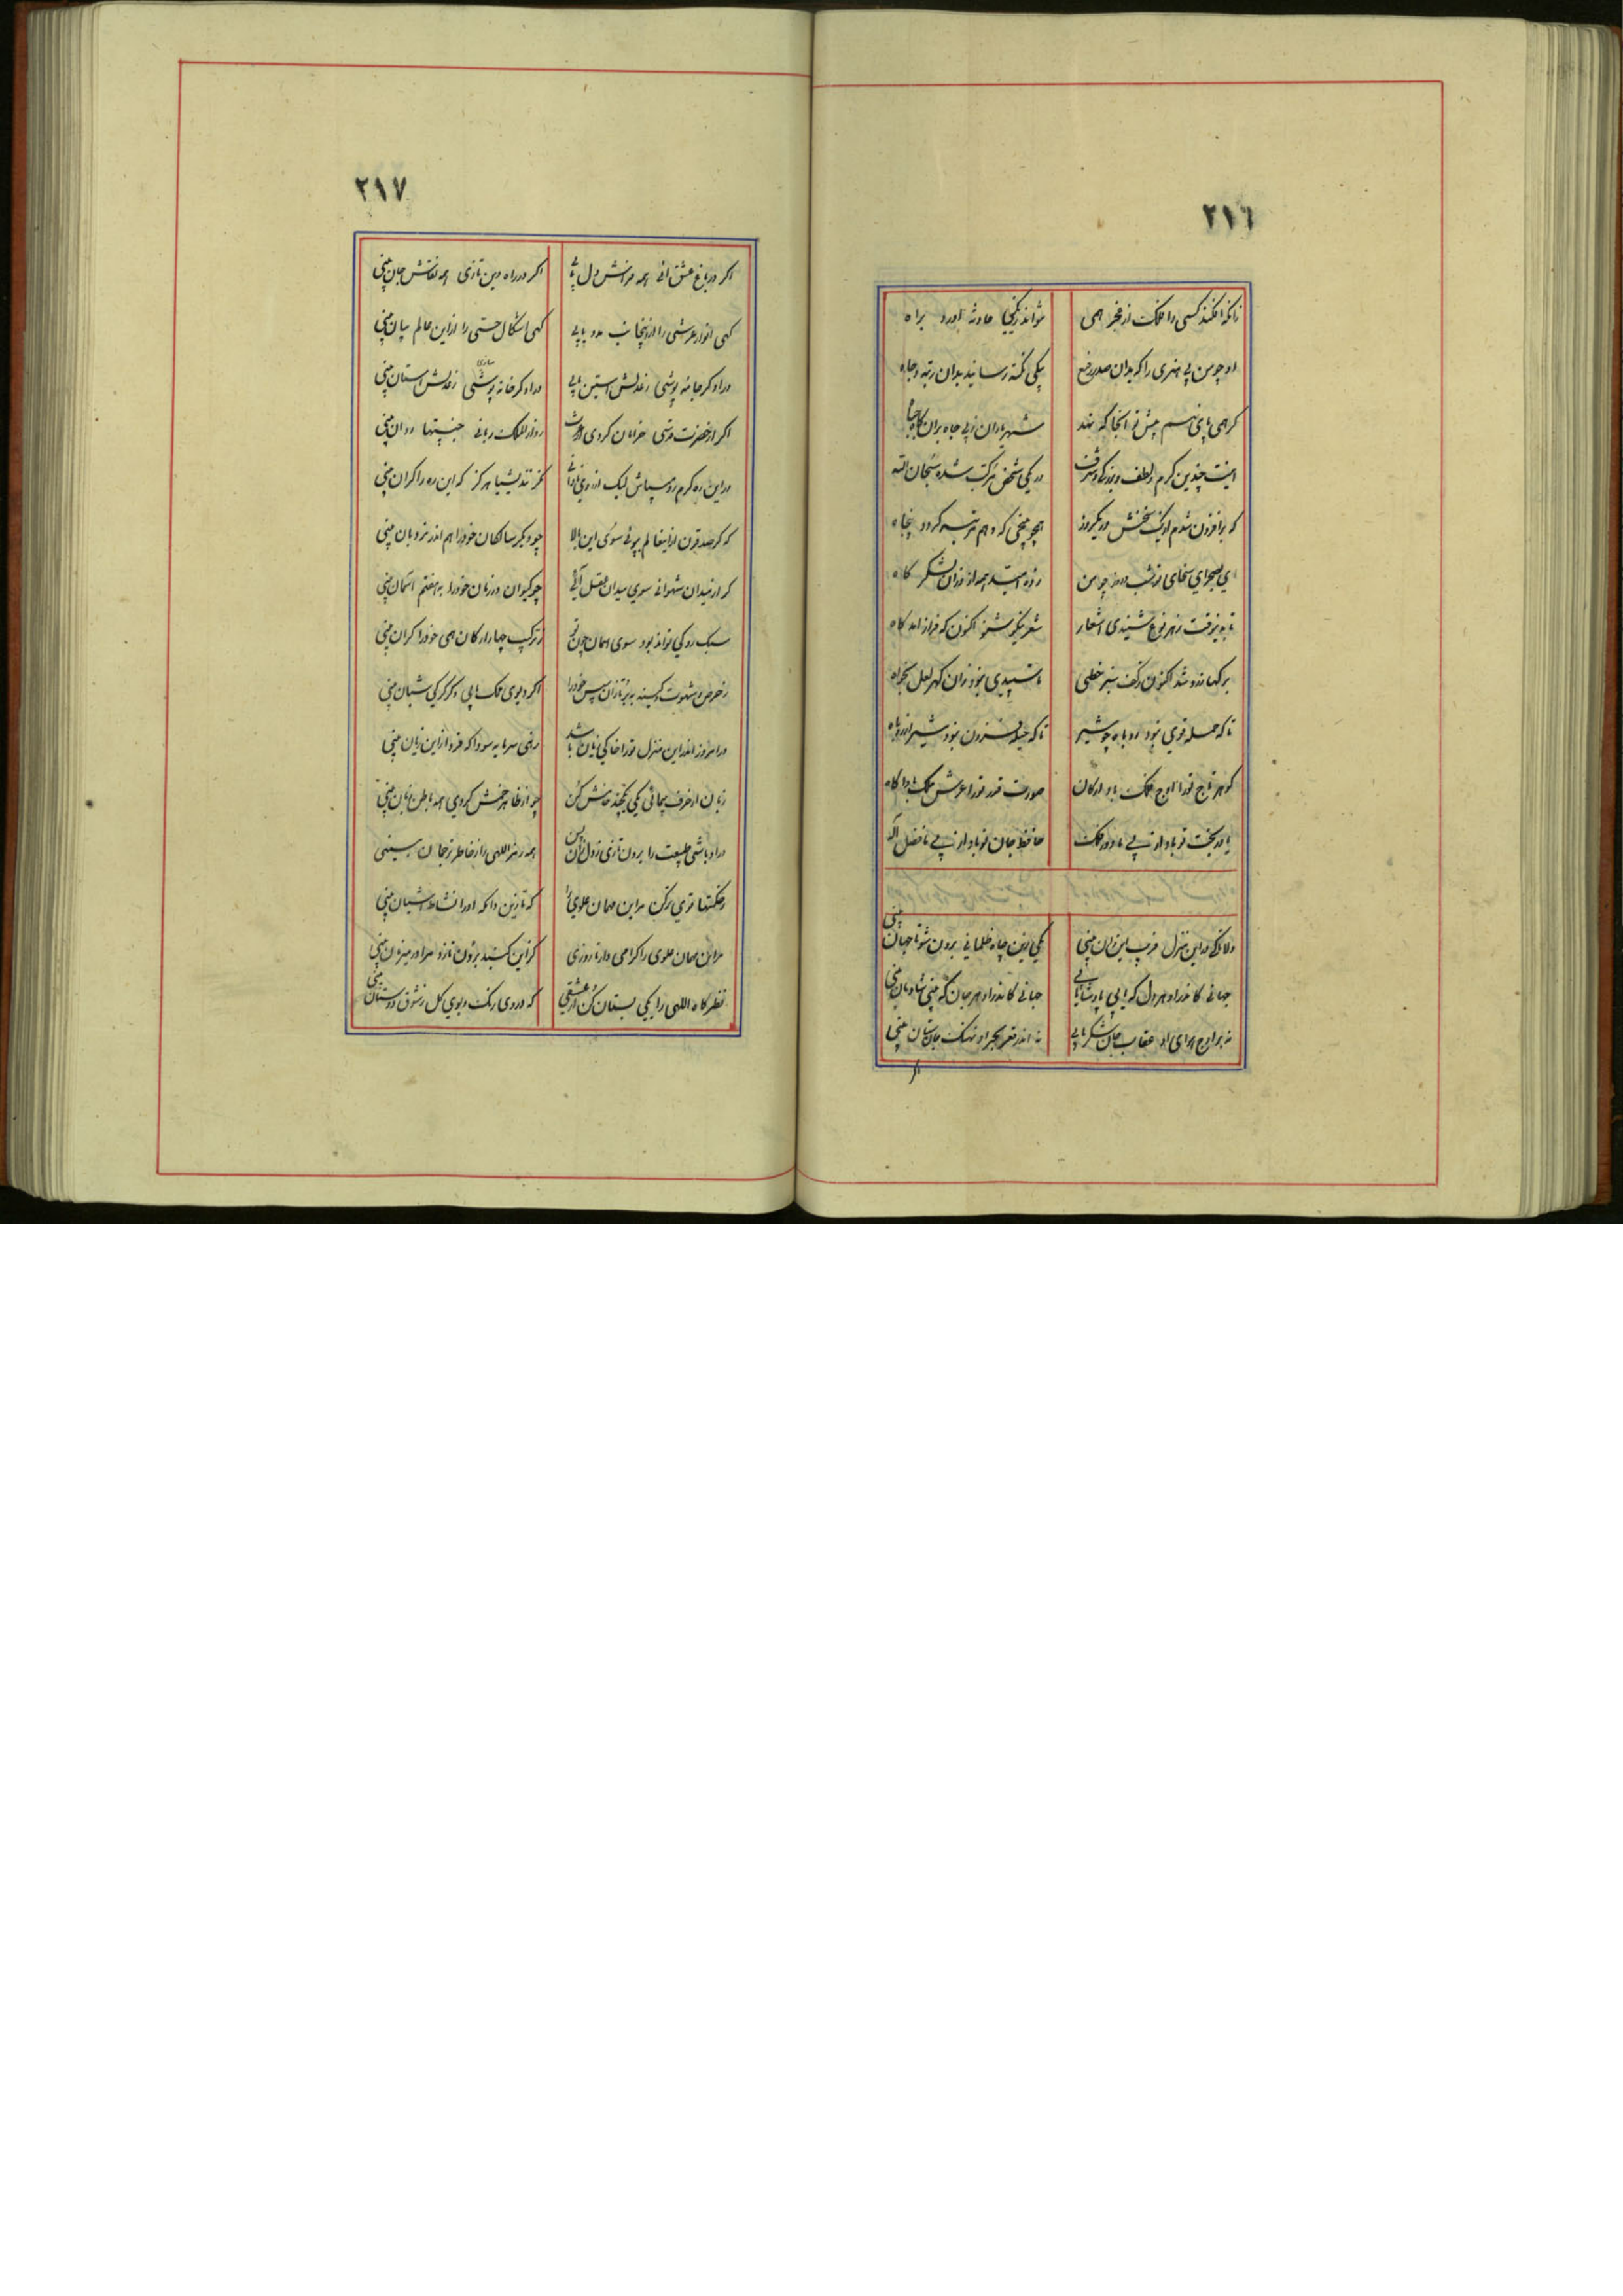 ٢١٦
زانکه افکند کسی را فلک از فخر همی نتواند زیکی حادثه آورد براه
او چو من بی هنری را که بدان صدر رفیع بیکی نکته رسانید بدان رتبه و جاه
کر همی پای نهم پیش تو آنجا که نهند شهریاران ز پی جاه بران
اینت چندین کرم و لطف و بزرکی و شرف در یکی شخص مرکب شده سبحان الله
که برافزون شدم از یک سخنش در یکروز همچو پنجی که و هم مرتبه کردد پنجاه
ای بصحرای سخای تو شب و روز چو من امید همه از شکر کاه
تا بوقت ز هر نوع شنیدی اشعار شعر نیکو بشنو اکنون که فراز آمد کاه
برکها زرد شد اکنون بکف سبز خطی سپیدی بخور زان کهر لعل بخواه
تا که حمله قوی نبود روباه چو شیر تا که حیله فزون نبود شیر از روباه
کوهر تاج تو را اوج فلک باد ارکان صورت قدر تو را عرش ملک بادا کاه
یاور بخت تو باد از پی ما دور فلک حافظ جان تو باد از پی ما فضل اله
دلا تا کی در این منزل فریب این و آن بینی یکی زین چاه ظلمانی برون شو تا جهان بینی
جهانی کاندر او هر دل که یابی پادشا یابی جهانی کاندر او هر جان که بینی شادمان بینی
نه بر اوج هوای او عقاب جان شکر یابی نه اندر قعر بحر او نهنک جان ستان بینی
اکر
٢١٧
اکر در باغ عشق آئی همه فراش دل یابی اکر در راه دین تازی همه نقاش جان بینی
کهی انوار عرشی را از آنجانب مدد یابی کهی اشکال حسی را از این عالم بیان بینی
در او کر جامه پوشی ز فضلش آستین یابی در او کر خانه پوشی سازی ز فضلش آستان بینی
اکر از حضرت قدسی خرامان کردی ز دارالملک ربانی جنیبتها روان بینی
در این ره کرم رو میباش لیک از روی نادانی نکر نندیشیا هرکز که این ره را کران بینی
که کر صد قرن از اینعالم بپوئی سوی این بالا چو دیکر سالکان خود را هم اندر نردبان بینی
کر از میدان شهوانی سوی میدان عقل آئی چو کیوان در زمان خود را به هفتم آسمان بینی
سبک رو کی تواند بود سوی آسمان چون تو ز ترکیب چهار ارکان همی خود را کران بینی
ز حرص و شهوت و کینه ببر تا زان سپس خود را اکر دیوی ملک یابی و کر کرکی شبان بینی
ور امروز اندر این منزل تو را حالی زیان باشد زهی سرمایه و سودا که فردا از این زیان بینی
زبان از حرف پیمائی یکی یکچند خامش کن چو از ظاهر خمش کردی همه باطن زبان بینی
در او باشی طبیعت را برون تازی ز دل زان پس همه رمز اللهی را ز خاطر ترجمان بینی
ز حکمتها قوی پر کن مر این مهمان علوی را که تا زین دامکه او را نشاط آشیان بینی
مر این مهمان علوی را کرامی دار تا روزی کز این کنبد برون تازد مر او را میزبان بینی
نظرکاه اللهی را یکی بستان کن از عشقی که در وی رنک و بوی کل ز شوق دوستان بینی